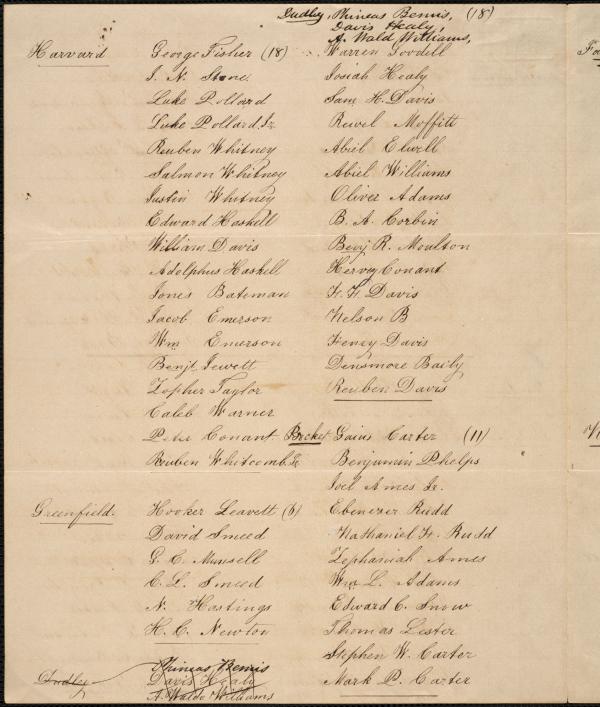 Dudley. Phineas Bemis, (18)
Davis Healy,
A. Wald Williams,
Harvard George Fisher (18)
S. N. Stone
Luke Pollard
Luke Pollard Jr
Reuben Whitney
Salmon Whitney
Justin Whitney
Edward Haskell
William Davis
Adolphus Haskell
Jones Bateman
Jacob Emerson
Wm Emerson
Benj. Jewett
Zopher Taylor
Caleb Warner
Peter Conant
Reuben Whitcomb Jr
Greenfield. Hooker Leavett (6)
David Smeed
G. C. Munsell
C. L. Smeed
N. Hastings
H. C. Newton
Dudley Phineas Bemis
Davis Healy
A. Waldo Williams
Warren Goodell
Josiah Healy
Sam H. Davis
Ruvel Moffitt
Abiel Elwell
Abiel Williams
Oliver Adams
B. A. Corbin
Benj R. Moulton
Hervey Conant
F. F. Davis
Nelson B
Henry Davis
Densmore Baily
Reuben Davis
Becket Gaius Carter (11)
Benjamin Phelps
Joel Ames Jr.
Ebenezer Rudd
Nathaniel F. Rudd
Zephaniah Ames
Wm L. Adams
Edward C. Snow
Thomas Lester
Stephen W. Carter
Mark P. Carter